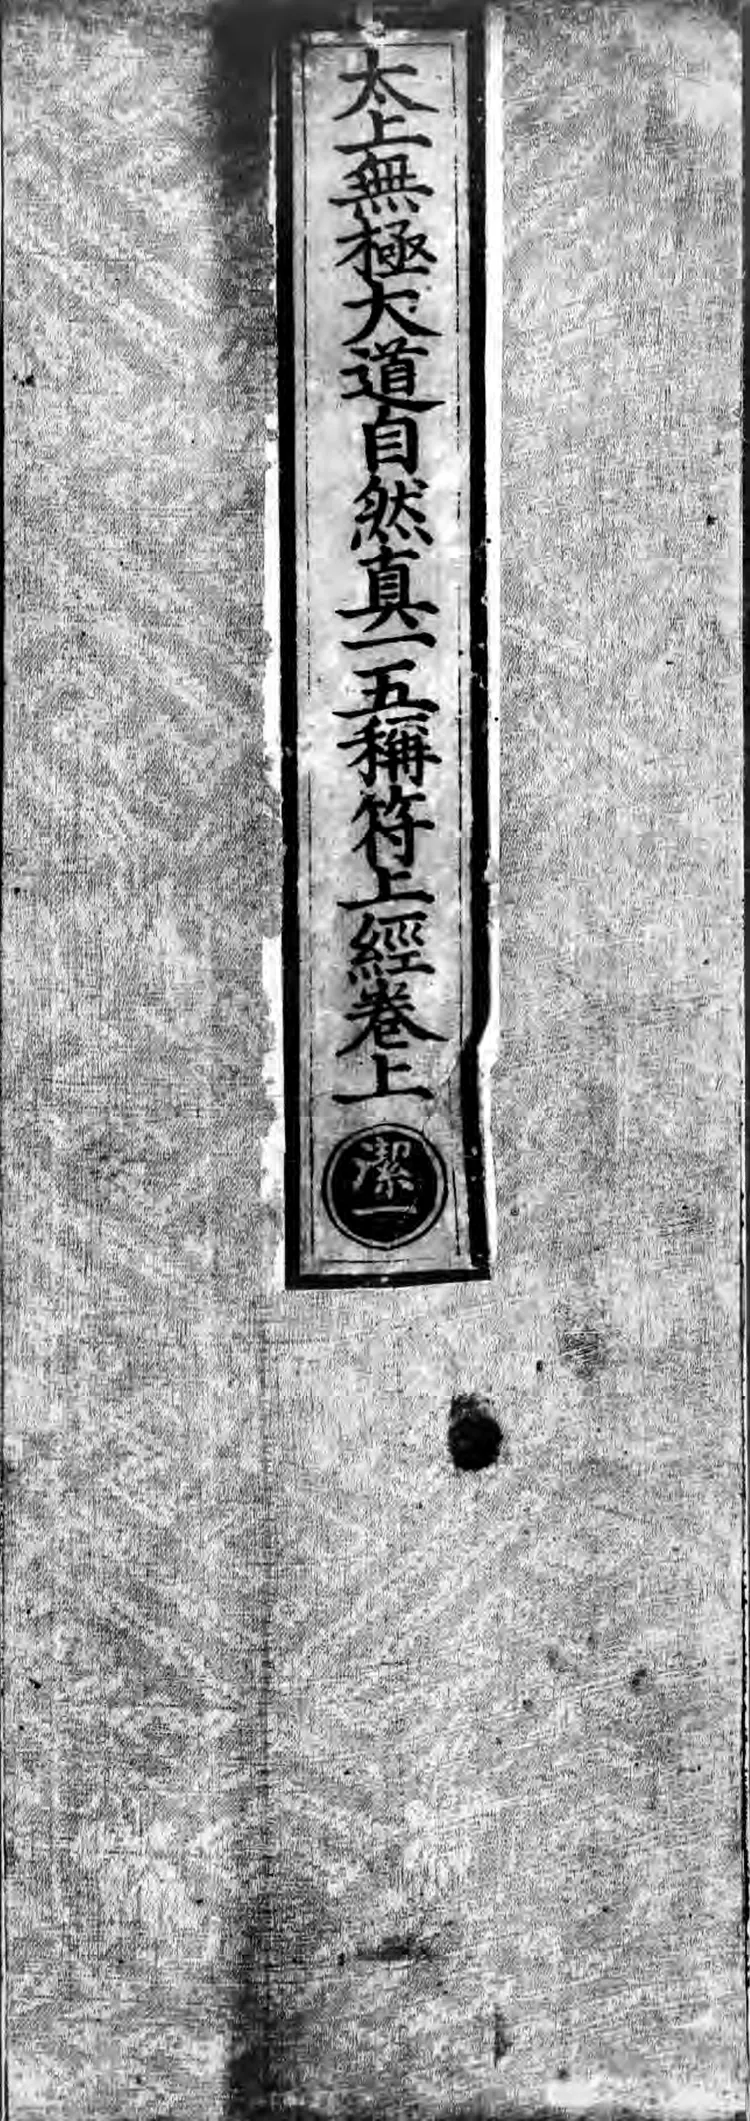 太上無極大道自然真一五稱符上經卷上
潔一